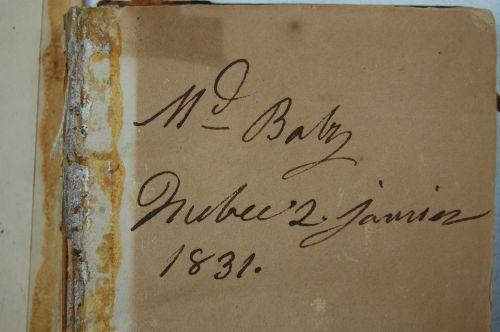 Md Baby
Quebec 2. janvier
1831.